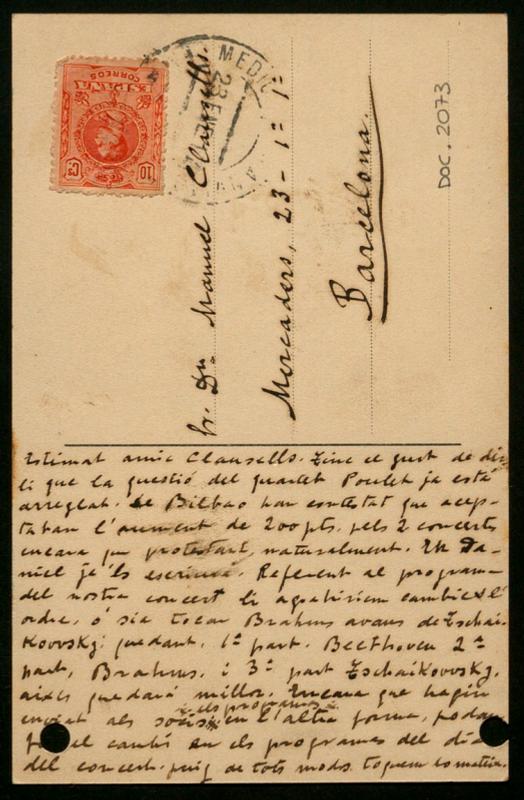 ESPAÑA
CORREOS
10 Cs
MEDI
23 ENE
Sr. Dn. Manuel Clausells.
Mercaders, 23-1º 1ª
Barcelona.
DOC. 2073
Estimat amic Clausells. Tinc el gust de dir
li que la questió del quartet Poulet ja està
arreglat. De Bilbao han contestat que acep-
taban l'aument de 200 pts. pels 2 concerts
encara que protestant, naturalment. En Da-
niel ja 'ls escriurà. Referent al programa
del nostre concert li agrahiriem cambiés l'
ordre, ó sia tocar Brahms avans de Tschai-
kovvsky: quedant, 1ª part. Beethoven 2ª
part, Brahms. i 3ª part Tschaikovvsky.
aixís quedará millor. Encara que hagin
enviat als socis els programes en l'altra forma, poden
fer el cambi en els programes del dia
del concert. puig de tots mods toquem lo mateix.